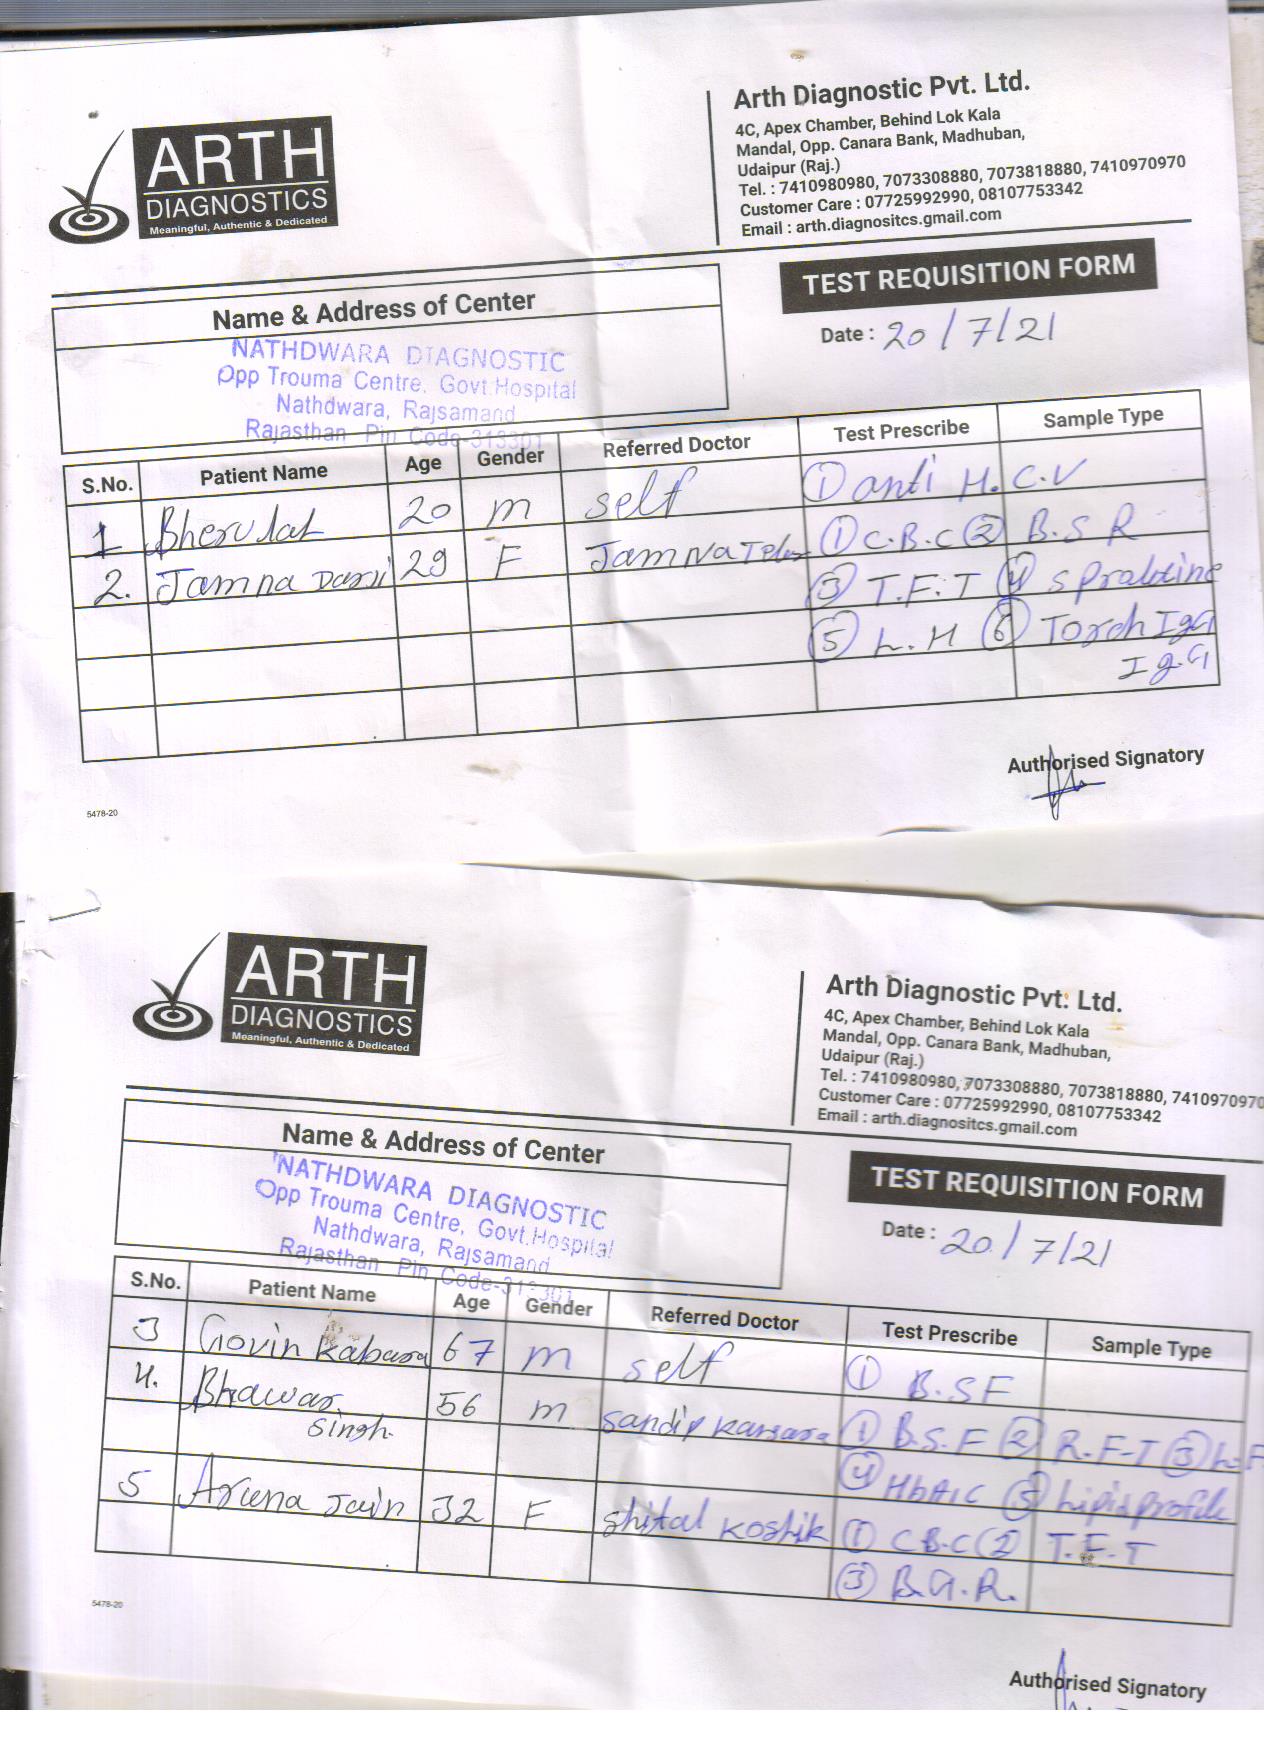 ARTH
DIAGNOSTICS
Meaningful, Authentic & Dedicated
Arth Diagnostic Pvt. Ltd.
4C, Apex Chamber, Behind Lok Kala
Mandal, Opp. Canara Bank, Madhuban,
Udaipur (Raj.)
Tel. : 7410980980, 7073308880, 7073818880, 7410970970
Customer Care : 07725992990, 08107753342
Email : arth.diagnositcs.gmail.com
TEST REQUISITION FORM
Date : 20/7/21
Name & Address of Center
NATHDWARA DIAGNOSTIC
Opp Trouma Centre, Govt.Hospital
Nathdwara, Rajsamand
Rajasthan Pin Code-313301
S.No. Patient Name Age Gender Referred Doctor Test Prescribe Sample Type
1 Bherulal 20 m self ① anti H.C.V
2. Jamna Darji 29 F Jamna ① C.B.C ② B.S R
③ T.F.T ④ S
⑤ L.H ⑥ Torch IgG
Ig.G
Authorised Signatory
5478-20
ARTH
DIAGNOSTICS
Meaningful, Authentic & Dedicated
Arth Diagnostic Pvt. Ltd.
4C, Apex Chamber, Behind Lok Kala
Mandal, Opp. Canara Bank, Madhuban,
Udaipur (Raj.)
Tel. : 7410980980, 7073308880, 7073818880, 7410970970
Customer Care : 07725992990, 08107753342
Email : arth.diagnositcs.gmail.com
TEST REQUISITION FORM
Date : 20/7/21
Name & Address of Center
NATHDWARA DIAGNOSTIC
Opp Trouma Centre, Govt.Hospital
Nathdwara, Rajsamand
Rajasthan Pin Code-313301
S.No. Patient Name Age Gender Referred Doctor Test Prescribe Sample Type
3 Govin Kabara 67 m self ① B.SF
4. Bhawar 56 m sandip ① B.S.F ② R.F-T ③ L.F
Singh ④ HbA1C ⑤ Lipid profile
5 Aruna Jain 32 F shital koshik ① CB.C ② T.F.T
③ B.G.R.
5478-20
Authorised Signatory